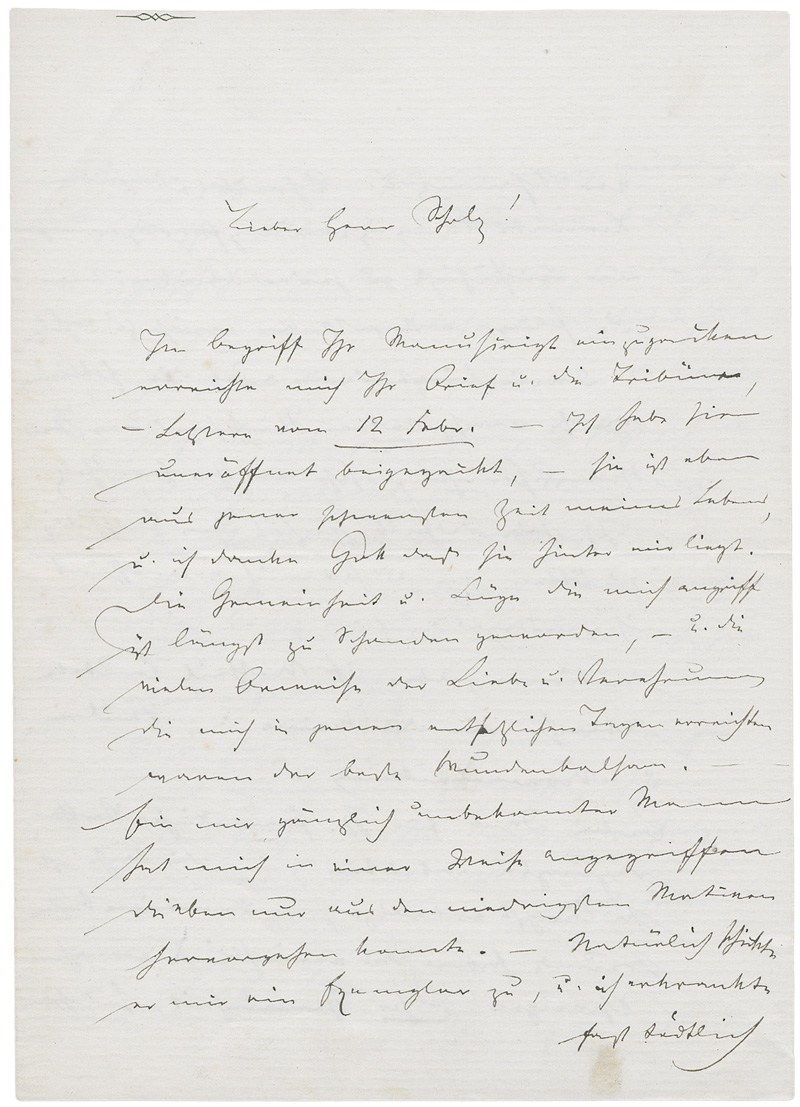 Lieber Herr Scholz!
Im Begriff Ihr Manuscript einzupacken
erreichte mich Ihr Brief u. die Tribüne,
– Letztere vom 12 Febr. – Ich habe sie
uneröffnet beigepackt, – sie ist eben
aus jener schwersten Zeit meines Lebens,
u. ich danke Gott daß sie hinter mir liegt.
Die Gemeinheit u. Lüge die mich angriff
ist längst zu Schanden geworden, – u. die
vielen Beweise der Liebe u. Verehrung
die mich in jenen entsetzlichen Tagen erreichten
waren der beste Wundenbalsam. –
Ein mir gänzlich unbekannter Mann
hat mich in einer Weise angegriffen
die eben nur aus den niedrigsten Motiven
hervorgehen konnte. – Natürlich schickte
er mir ein Exemplar zu, u. ich erkrankte
fast tödtlich